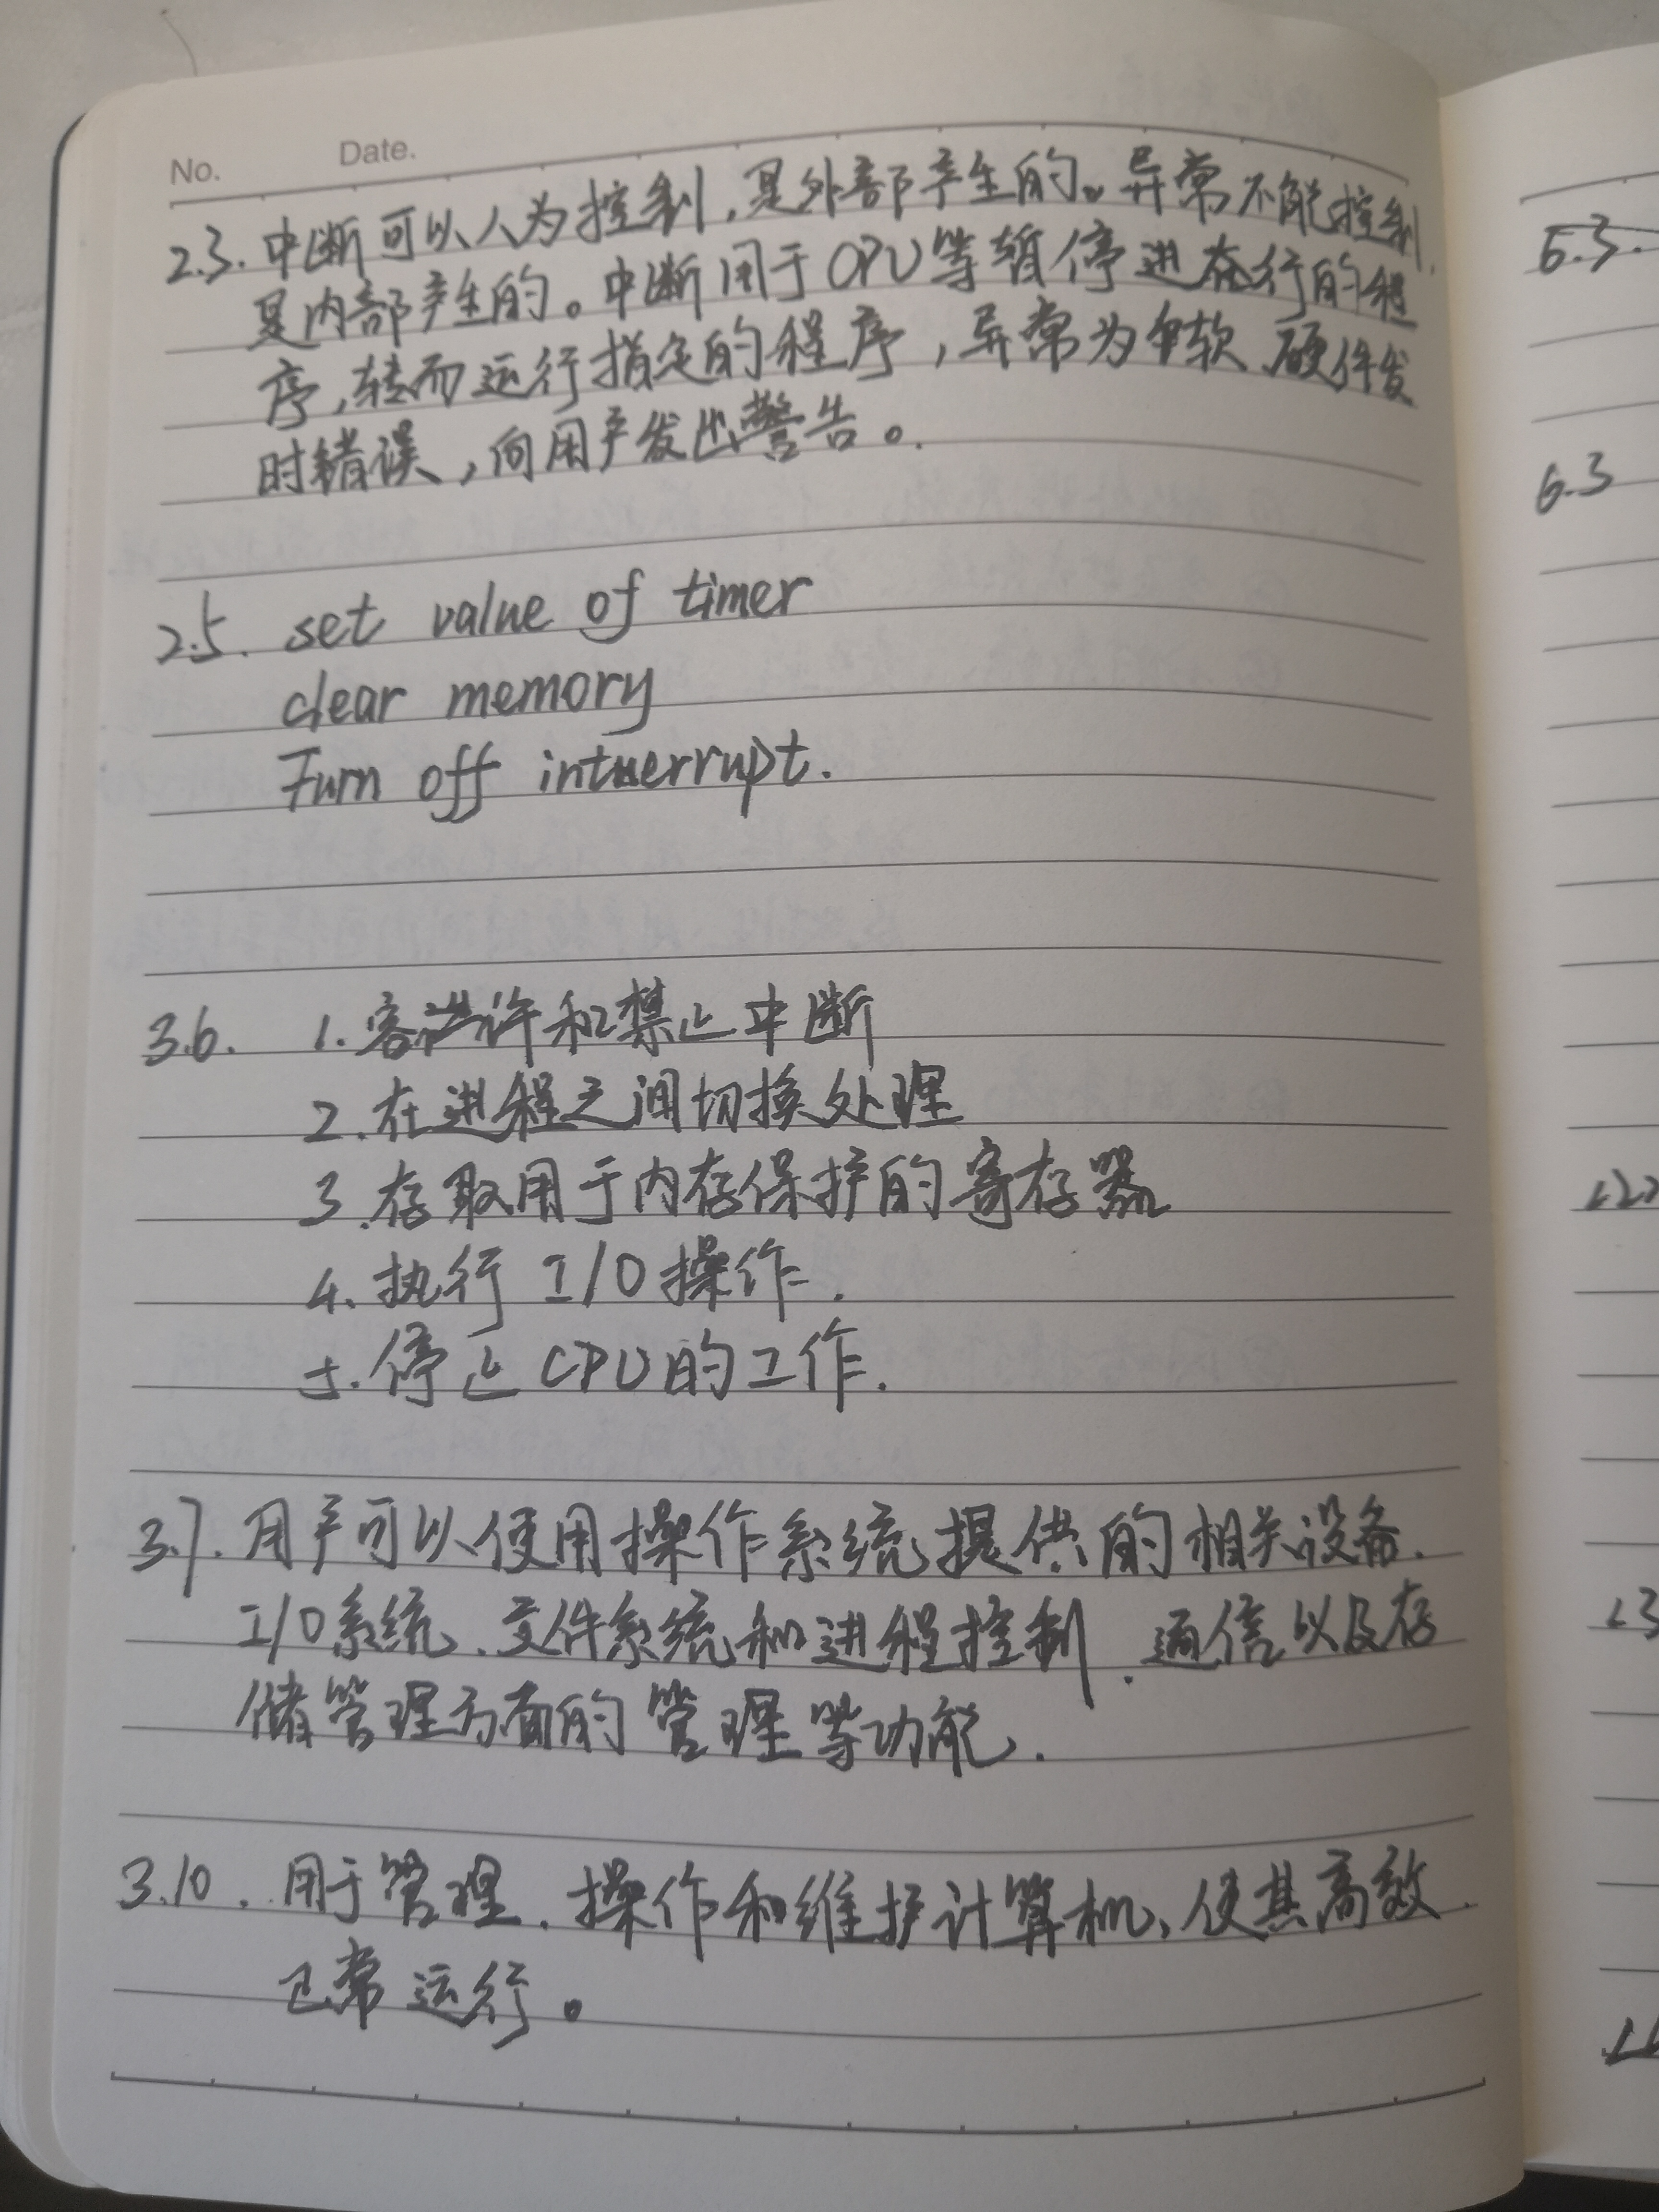 No. Date.
2.3. 中断可以人为控制,是外部产生的。异常不能控制,
是内部产生的。中断用于CPU等暂停进在行的程
序,转而运行指定的程序,异常为软、硬件发
时错误,向用户发出警告。
2.5. set value of timer
clear memory
Turn off interrupt.
3.6. 1. 容许和禁止中断
2. 在进程之间切换处理
3. 存取用于内存保护的寄存器
4. 执行 I/O 操作.
5. 停止 CPU 的工作.
3.7. 用户可以使用操作系统提供的相关设备、
I/O系统、文件系统和进程控制、通信以及存
储管理方面的管理等功能.
3.10. 用于管理、操作和维护计算机,使其高效、
正常运行。
6.3.
6.3